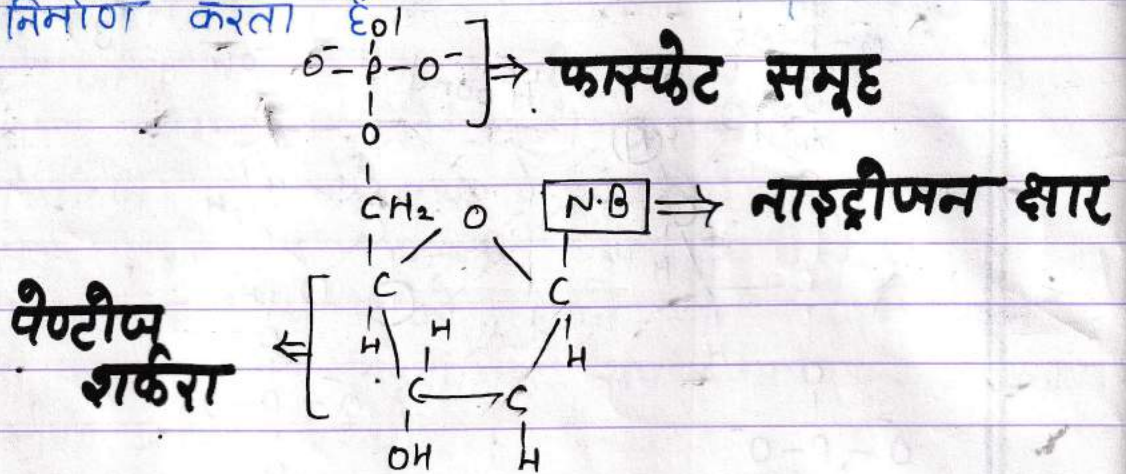 निर्माण करता है।
O
O⁻ – P – O⁻ ] ⇒ फास्फेट समूह
O
CH₂ O N·B ⇒ नाइट्रोजन क्षार
C C
पेण्टोज ⇐ [ H H H
शर्करा C C
OH H